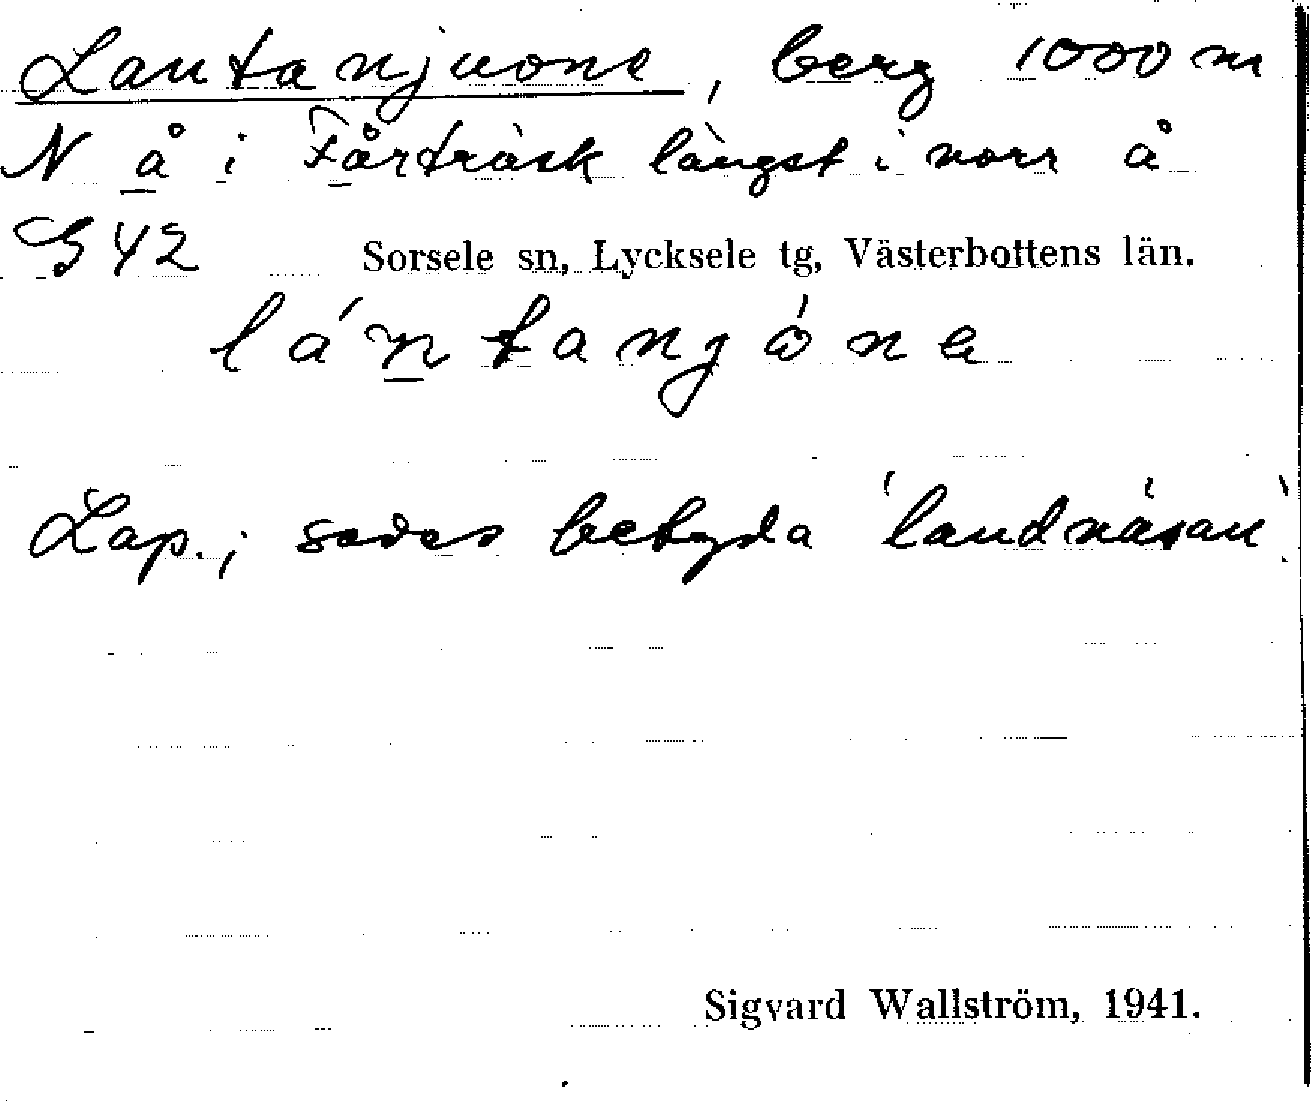 Lantanjuone, berg 1000 m
N å i Fårträsk längst i norr å
G 42 Sorsele sn, Lycksele tg, Västerbottens län.
lántanjòne
Lap.; sades betyda 'landnäsan'.
Sigvard Wallström, 1941.